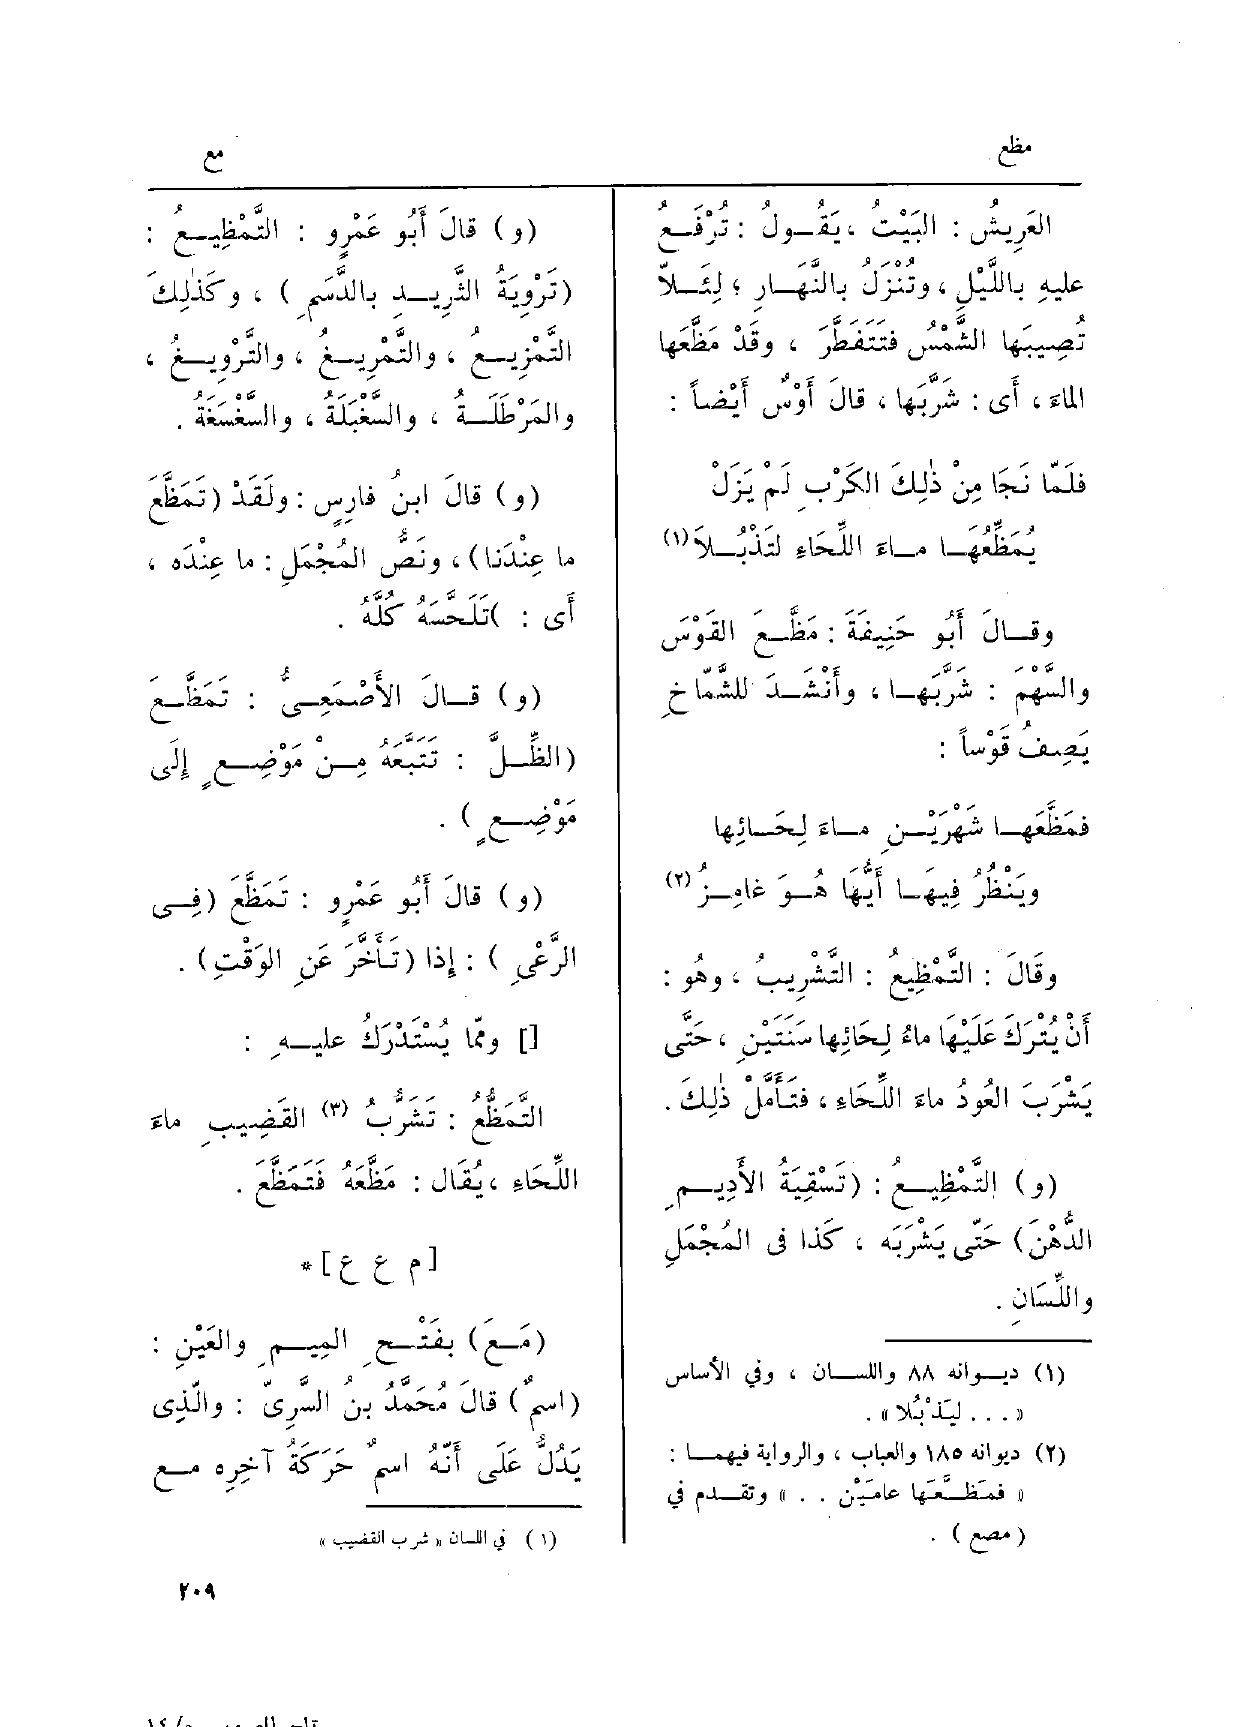 مظع
مع
العَرِيشُ : البَيْتُ ، يَقُولُ : تُرْفَعُ
عليهِ باللَّيْلِ ، وتُنْزَلُ بالنَّهارِ ؛ لِئَلاّ
تُصِيبَها الشَّمْسُ فتَتَفَطَّرَ ، وقَدْ مَظَّعَها
الماءَ ، أى : شَرَّبَها ، قالَ أَوْسٌ أَيْضاً :
فلَمّا نَجَا مِنْ ذٰلِكَ الكَرْبِ لَمْ يَزَلْ
يُمَظِّعُها ماءَ اللِّحَاءِ لتَذْبُلاَ (١)
وقالَ أَبُو حَنِيفَةَ : مَظَّعَ القَوْسَ
والسَّهْمَ : شَرَّبَها ، وأَنْشَدَ للشَّمّاخِ
يَصِفُ قَوْساً :
فمَظَّعَها شَهْرَيْنِ ماءَ لِحَائِها
ويَنْظُرُ فِيهَا أَيُّهَا هُوَ غامِزُ (٢)
وقَالَ : التَّمْظِيعُ : التَّشْرِيبُ ، وهُو :
أَنْ يُتْرَكَ عَلَيْهَا ماءُ لِحَائِها سَنَتَيْنِ ، حَتَّى
يَشْرَبَ العُودُ ماءَ اللِّحَاءِ ، فتَأَمَّلْ ذٰلِكَ .
(و) التَّمْظِيعُ : (تَسْقِيَةُ الأَدِيمِ
الدُّهْنَ) حَتّى يَشْرَبَه ، كَذا فى المُجْمَلِ
واللِّسَانِ .
(١) ديوانه ٨٨ واللسان ، وفي الأساس
« . . . ليَذْبُلا » .
(٢) ديوانه ١٨٥ والعباب ، والرواية فيهما :
« فمَظَّعَها عامَيْن . . » وتقدم في
( مصع ) .
(و) قالَ أَبُو عَمْرٍو : التَّمْظِيعُ :
(تَرْوِيَةُ الثَّرِيدِ بالدَّسَمِ ) ، وكَذٰلِكَ
التَّمْزِيعُ ، والتَّمْرِيغُ ، والتَّرْوِيغُ ،
والمَرْطَلَةُ ، والسَّغْبَلَةُ ، والسَّغْسَغَةُ .
(و) قالَ ابنُ فارِسٍ : ولَقَدْ (تَمَظَّعَ
ما عِنْدَنا) ، ونَصُّ المُجْمَلِ : ما عِنْدَه ،
أَى : )تَلَحَّسَهُ كُلَّهُ .
(و) قالَ الأَصْمَعِىُّ : تَمَظَّعَ
(الظِّلَّ : تَتَبَّعَهُ مِنْ مَوْضِعٍ إِلَى
مَوْضِعٍ ) .
(و) قالَ أَبُو عَمْرٍو : تَمَظَّعَ (فِى
الرَّعْىِ ) : إذا (تَأَخَّرَ عَنِ الوَقْتِ) .
[] وممّا يُسْتَدْرَكُ عليهِ :
التَّمَظُّعُ : تَشَرُّبُ (٣) القَضِيبِ ماءَ
اللِّحَاءِ ، يُقَال : مَظَّعَهُ فَتَمَظَّعَ .
[م ع ع] *
(مَعَ) بفَتْحِ المِيمِ والعَيْنِ :
(اسمٌ) قالَ مُحَمَّدُ بنُ السَّرِىّ : والَّذِى
يَدُلُّ عَلَى أَنَّهُ اسمٌ حَرَكَةُ آخِرِه مع
(١) في اللسان « شرب القضيب »
٢٠٩